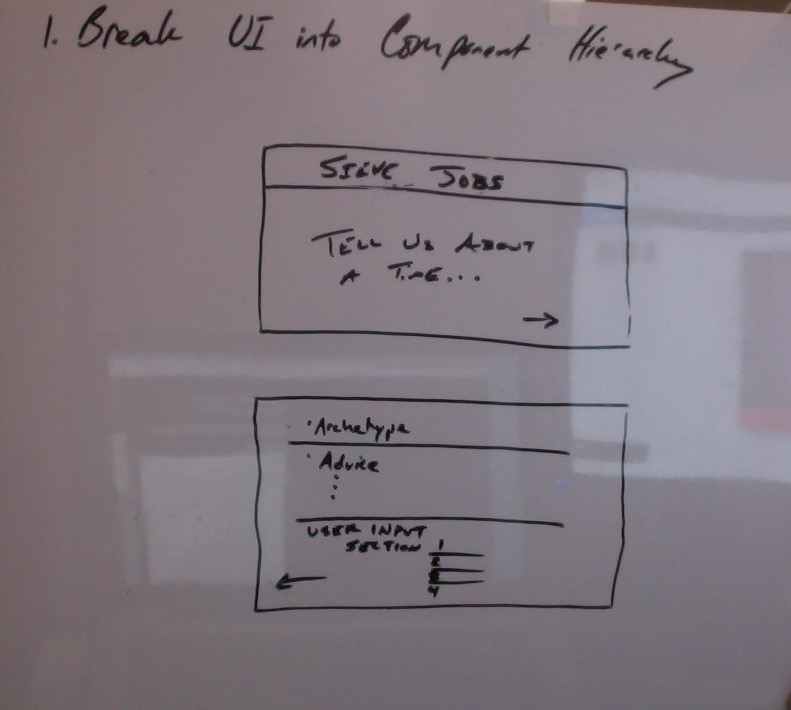 1. Break UI into Component Hierarchy
STEVE JOBS
TELL US ABOUT
A TIME...
Archetype
Advice
USER INPUT
SECTION
1
2
3
4